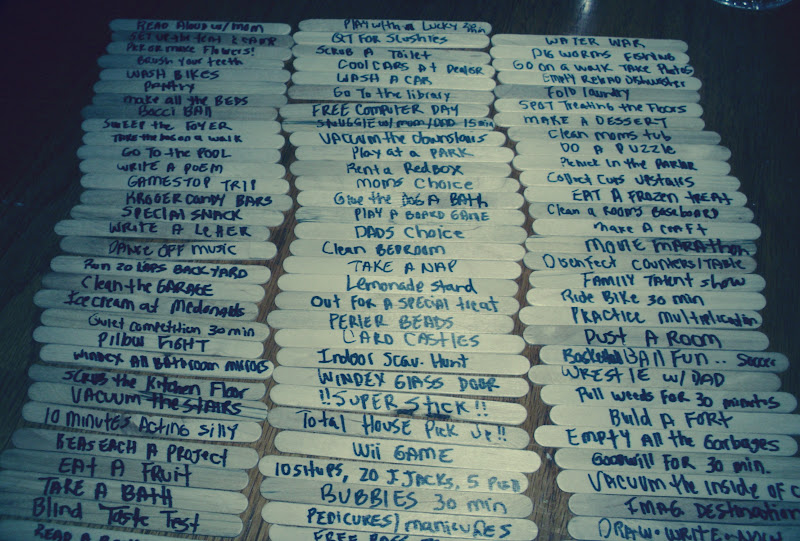 READ ALOUD w/ MOM
SET UP the tent & CAMP
Pick or make Flowers!
BRUSH YOUR teeth
WASH BIKES
PANTRY
make all the BEDS
Bocci BAll
SWEEP the FOYER
TAKE the DOG on a WALK
GO TO the POOL
WRITE A POEM
GAMESTOP TRIP
KROGER CANDY BARS
SPECIAL SNACK
WRITE A LetteR
DANCE OFF MUSIC
Run 20 LAPS BACKYARD
Clean the GARAGE
Icecream at Mcdonalds
Quiet competition 30 min
Pillow FIGHT
WINDEX All BAthroom MIRRORS
SCRUB the Kitchen Floor
VACUUM the STAIRS
10 minutes ACTING SILLY
REASEACH A PROJECT
EAT A FRUIT
TAKE A BATH
Blind Taste Test
READ A
PLAY with a LUCKY 30 min
OUT FOR Slushies
SCRUB A Toilet
COOL CARS AT DEALER
WASH A CAR
Go to the library
FREE COMPUTER DAY
SNUGGLE w/ mom/DAD 15 min
VACUUM the downstairs
Play at a PARK
Rent a Redbox
MOMS CHOICE
Give the DOG A BATH
PLAY A BOARD GAME
DADS CHOICE
Clean BEDROOM
TAKE A NAP
Lemonade stand
OUT FOR A SPECIAL treat
PERLER BEADS
CARD CASTLES
Indoor Scav. Hunt
WINDEX GLASS DOOR
!!SUPER Stick!!
Total House Pick Up!!
Wii GAME
10 SITUPS, 20 J. JACKS, 5 PUSH
BUBBLES 30 min
PEDICURES/MANICURES
FREE
WATER WAR
DIG WORMS FISHING
GO on a walk TAKE PHOTOS
EMPTY RELOAD DISHWASHER
Fold laundry
SPOT TREATING the FLOORS
MAKE A DESSERT
Clean moms tub
DO A PUZZLE
PICNICK IN the PARLOR
Collect Cups upstairs
EAT A FROZEN TREAT
Clean a ROOMS BASEBOARD
Make A CRAFT
MOVIE MARATHON
Disenfect COUNTERS/TABLE
FAMILY TALENT show
Ride Bike 30 min
PRACTICE MULTIPLICATION
DUST A ROOM
BAsketball BAll FUN.. SOCCER
WRESTLE w/ DAD
Pull weeds FOR 30 minutes
Build A FORT
EMPTY All the GARBAGES
GOODWILL FOR 30 min.
VACUUM the INSIDE OF C
IMAG DESTINATION
DRAW • WRITE •